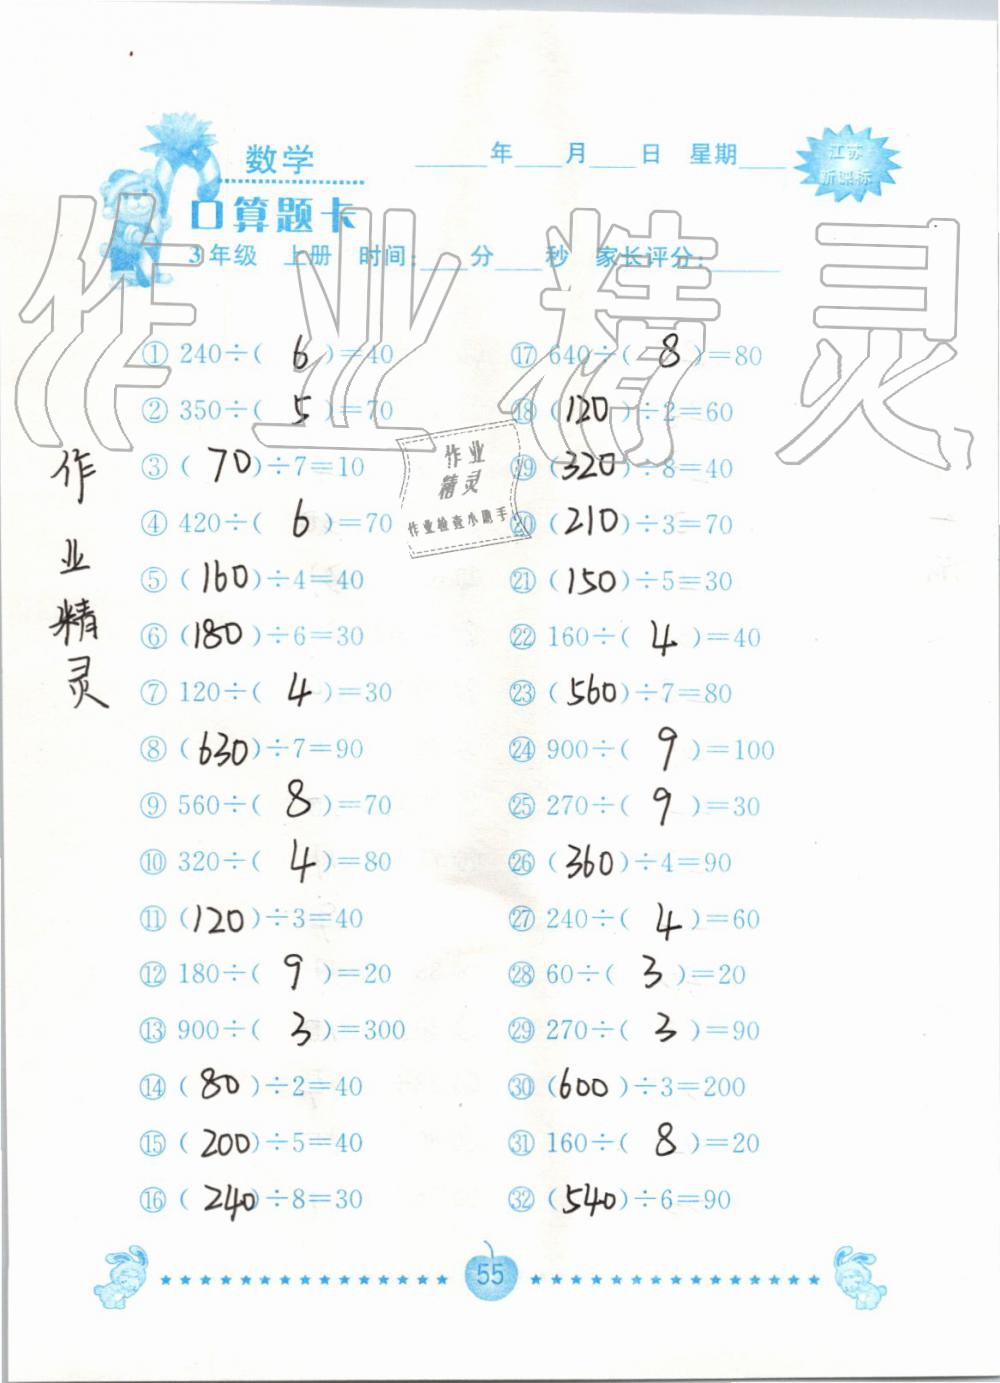 数学
____年____月____日 星期____
江苏
新课标
口算题卡
3年级 上册 时间:____分____秒 家长评分:____
作业精灵
① 240÷( 6 )=40
② 350÷( 5 )=70
③ ( 70 )÷7=10
④ 420÷( 6 )=70
⑤ ( 160 )÷4=40
⑥ ( 180 )÷6=30
⑦ 120÷( 4 )=30
⑧ ( 630 )÷7=90
⑨ 560÷( 8 )=70
⑩ 320÷( 4 )=80
⑪ ( 120 )÷3=40
⑫ 180÷( 9 )=20
⑬ 900÷( 3 )=300
⑭ ( 80 )÷2=40
⑮ ( 200 )÷5=40
⑯ ( 240 )÷8=30
⑰ 640÷( 8 )=80
⑱ ( 120 )÷2=60
⑲ ( 320 )÷8=40
⑳ ( 210 )÷3=70
㉑ ( 150 )÷5=30
㉒ 160÷( 4 )=40
㉓ ( 560 )÷7=80
㉔ 900÷( 9 )=100
㉕ 270÷( 9 )=30
㉖ ( 360 )÷4=90
㉗ 240÷( 4 )=60
㉘ 60÷( 3 )=20
㉙ 270÷( 3 )=90
㉚ ( 600 )÷3=200
㉛ 160÷( 8 )=20
㉜ ( 540 )÷6=90
作业精灵
作业
精灵
作业检查小助手
55